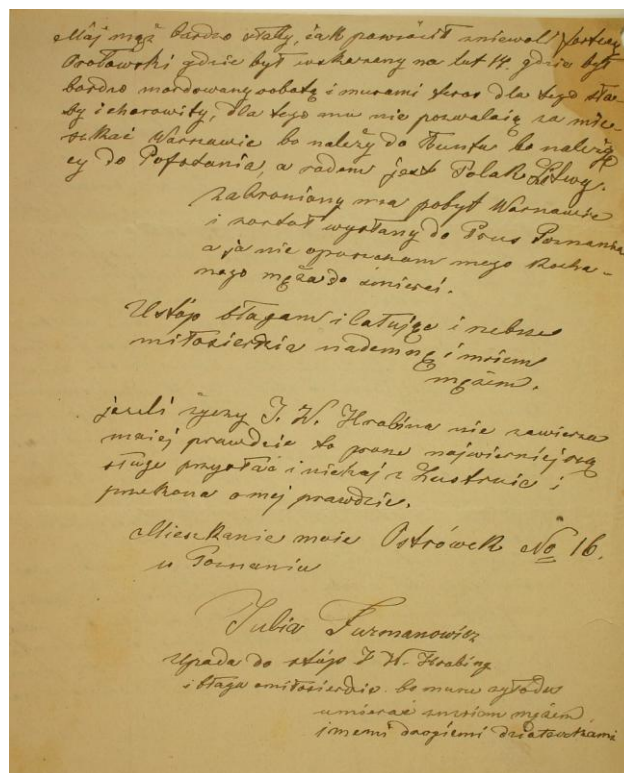 Mój mąż bardzo słaby, jak powrócił z niewoli fortecy
gdzie był wskazany na lat 14. gdzie był
bardzo mordowany robotą i murami teraz dla tego sła-
by i chorowity, dla tego mu nie pozwalają za mie-
szkać Warszawie bo należy do Buntu bo należy
cy do Pofstania, a rodem jest Polak Litwy.
Zabroniony ma pobyt Warszawie
i został wysłany do Prus Poznania
a ja nie opuszczam mego Kocha-
nego męża do śmierci.
Ustóp błagam i całując i żebrze
miłosierdzia nademną i moiem
mężem.
jeżeli życzy J. W. Hrabina nie zawierza
moiej prawdzie to prosze najwierniejszą
sługe przysłać i niehaj z Lustruie i
przekona o mej prawdzie.
Mieszkanie moie Ostrówek No 16.
w Poznaniu
Julia Furmanowicz
Upada do stóp J W. Hrabiny
i błaga o miłosierdzie bo musze z głodu
umierać z moiem mężem
i memi drogiemi dziateczkami